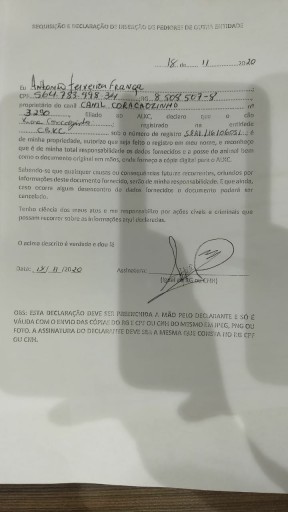 REQUISIÇÃO E DECLARAÇÃO DE EMISSÃO DE PEDIGREE DE OUTRA ENTIDADE
18 de 11 2020
Eu Antonio Ferreira França
CPF 564.783.998.34 RG 8 508 507-8
proprietário do canil CANIL CORACAOZINHO nº
3290 filiado ao ALKC, declaro que o cão
registrado na entidade
CBKC sob o número de registro ; é
de minha propriedade, autorizo que seja feito o registro em meu nome, e reconheço
que é de minha total responsabilidade os dados fornecidos e a posse do animal bem
como o documento original em mãos, onde forneço a cópia digital para a ALKC.
Sabendo-se que qualquer causas ou consequências futuras recorrentes, oriundos por
informações deste documento fornecido, serão de minha responsabilidade. E que ainda,
caso ocorra algum desencontro de dados fornecidos o documento poderá ser
cancelado.
Tenho ciência dos meus atos e me responsabilizo por ações cíveis e criminais que
possam recorrer sobre as informações aqui declaradas.
O acima descrito é verdade e dou fé
Data: 18/11/2020 Assinatura:
(igual do RG ou CNH)
OBS: ESTA DECLARAÇÃO DEVE SER PREENCHIDA A MÃO PELO DECLARANTE E SÓ É
VÁLIDA COM O ENVIO DAS CÓPIAS DO RG E CPF OU CNH DO MESMO EM JPEG, PNG OU
FOTO. A ASSINATURA DO DECLARANTE DEVE SER A MESMA QUE CONSTA NO RG E CPF
OU CNH.